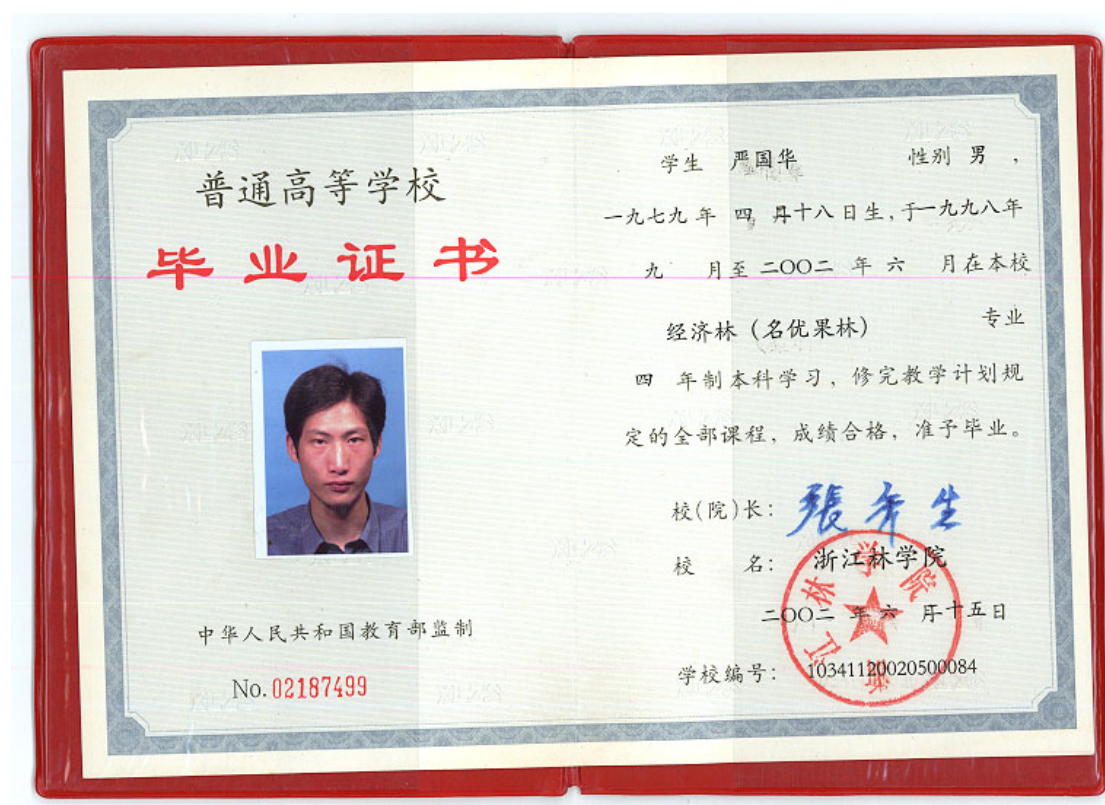 普通高等学校
毕业证书
中华人民共和国教育部监制
No.02187499
学生 严国华 性别 男 ,
一九七九 年 四 月十八日生,于一九九八年
九 月至 二〇〇二 年 六 月在本校
经济林（名优果林） 专业
四 年制本科学习，修完教学计划规
定的全部课程，成绩合格，准予毕业。
校(院)长： 張年生
校 名： 浙江林学院
二〇〇二 年 六 月十五日
学校编号： 10341120020500084
浙江林学院